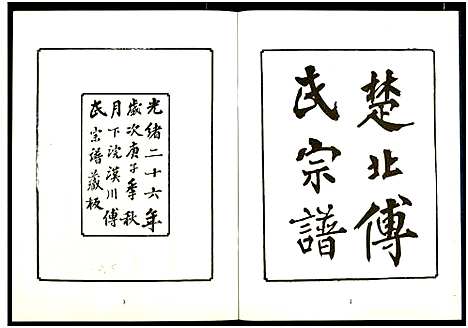 楚北傅
氏宗譜
光緒二十六年
歲次庚子季秋
月下浣漢川傅
氏宗譜藏板
1
3